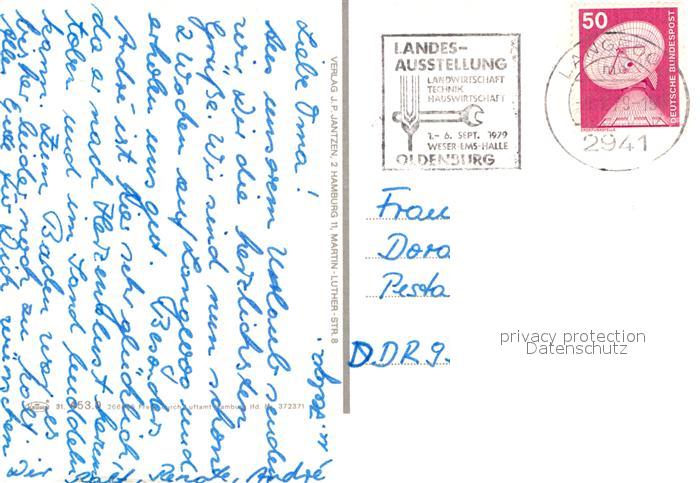 Liebe Oma!
Aus unserem Urlaub senden
wir Dir die herzlichsten
Grüße. Wir sind nun schon
2 Wochen auf Langeoog und
erholen uns gut. Besonders
André ist hier sehr glücklich
da er nach Herzenslust herum
toben und im Sand buddeln
kann. Zum Baden war es
bisher leider noch zu kalt.
Alles Gute für Dich wünschen
Dir Ralf, Renate, André
VERLAG J.P. JANTZEN, 2 HAMBURG 11, MARTIN-LUTHER-STR. 8
LANDES-
AUSSTELLUNG
LANDWIRTSCHAFT
TECHNIK
HAUSWIRTSCHAFT
1.- 6. SEPT. 1979
WESER-EMS-HALLE
OLDENBURG
2941
50
DEUTSCHE BUNDESPOST
Frau
Dora
Pesta
DDR 9.
privacy protection
Datenschutz